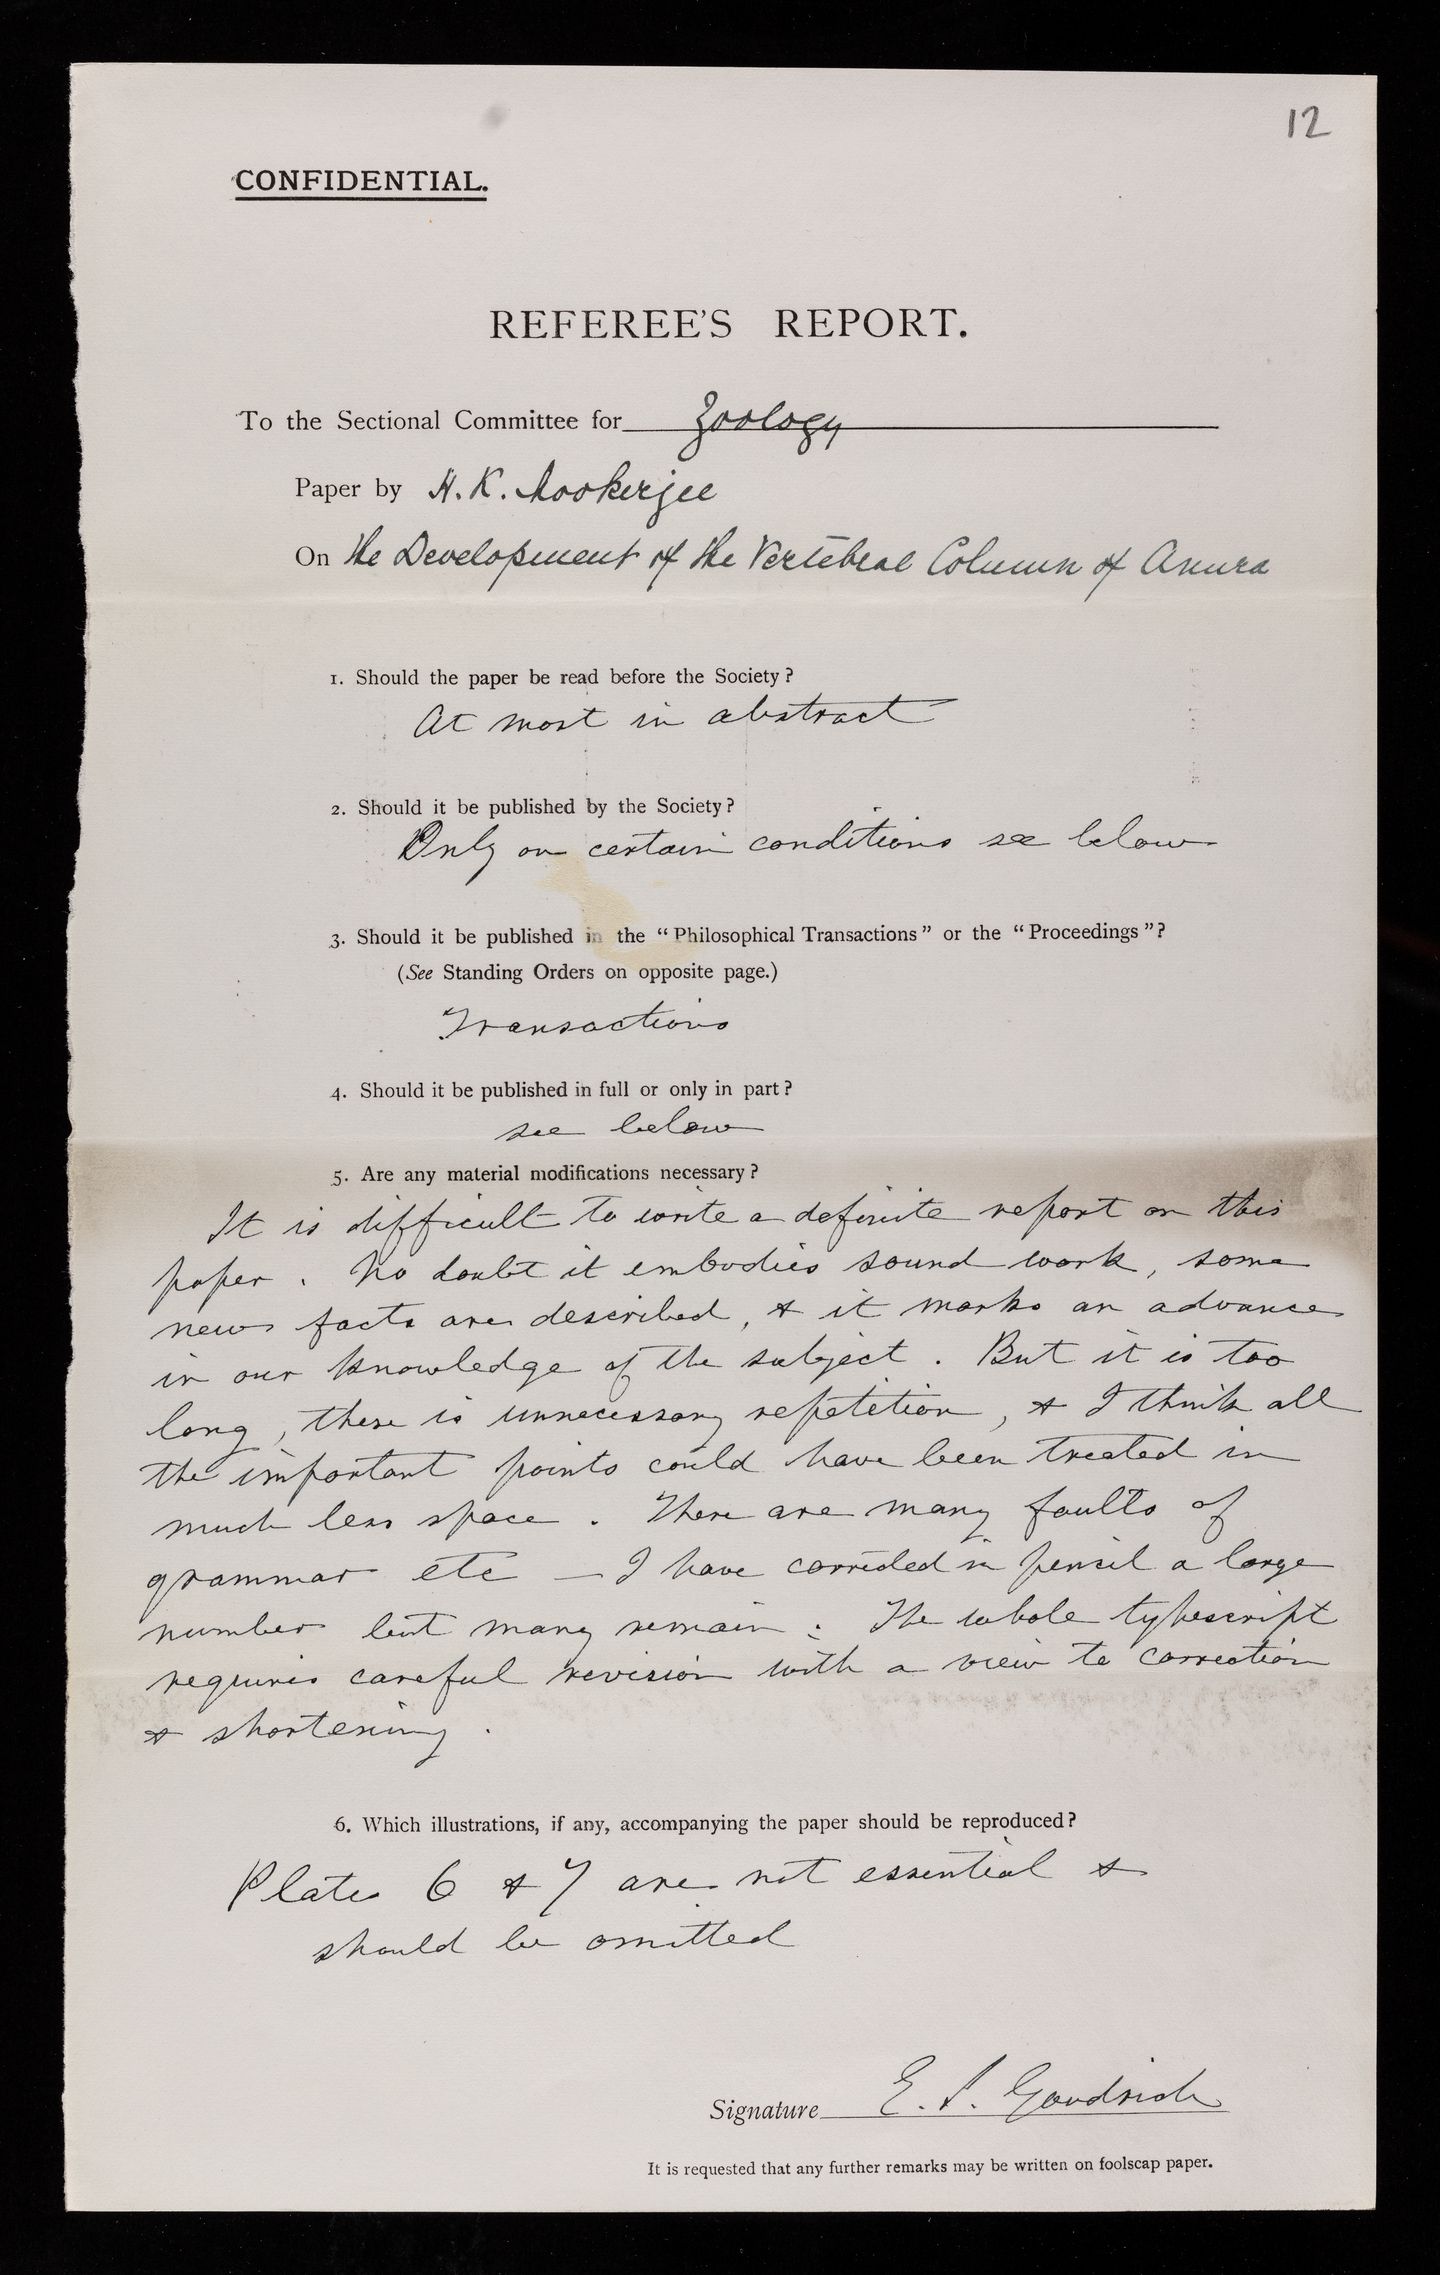 12
CONFIDENTIAL.
REFEREE'S REPORT.
To the Sectional Committee for Zoology
Paper by H. K. Mookerjee
On the Development of the Vertebral Column of Anura
1. Should the paper be read before the Society?
At most in abstract
2. Should it be published by the Society?
Only on certain conditions see below
3. Should it be published in the "Philosophical Transactions" or the "Proceedings"?
(See Standing Orders on opposite page.)
Transactions
4. Should it be published in full or only in part?
see below
5. Are any material modifications necessary?
It is difficult to write a definite report on this
paper. No doubt it embodies sound work, some
new facts are described, & it marks an advance
in our knowledge of the subject. But it is too
long, there is unnecessary repetition, & I think all
the important points could have been treated in
much less space. There are many faults of
grammar etc — I have corrected in pencil a large
number but many remain. The whole typescript
requires careful revision with a view to correction
& shortening.
6. Which illustrations, if any, accompanying the paper should be reproduced?
Plates 6 & 7 are not essential &
should be omitted
Signature E. S. Goodrich
It is requested that any further remarks may be written on foolscap paper.